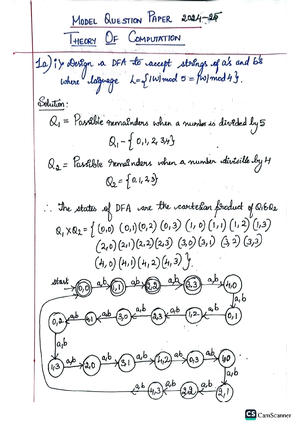 MODEL QUESTION PAPER 2024-25
THEORY OF COMPUTATION
1a) i) Design a DFA to accept strings of a's and b's
where language L = { |W| mod 5 = |W| mod 4 }.
Solution:
Q1 = Possible remainders when a number is divided by 5
Q1 - { 0, 1, 2, 3, 4 }
Q2 = Possible remainders when a number divisible by 4
Q2 = { 0, 1, 2, 3 }
∴ The states of DFA are the cartesian product of Q1 & Q2
Q1 X Q2 = { (0,0) (0,1) (0,2) (0,3) (1,0) (1,1) (1,2) (1,3)
(2,0) (2,1) (2,2) (2,3) (3,0) (3,1) (3,2) (3,3)
(4,0) (4,1) (4,2) (4,3) }.
start 0,0 a,b 1,1 a,b 2,2 a,b 3,3 a,b 4,0
a,b
0,2 a,b 4,1 a,b 3,0 a,b 2,3 a,b 1,2 a,b 0,1
a,b
1,3 a,b 2,0 a,b 3,1 a,b 4,2 a,b 0,3 a,b 1,0
a,b
a,b 4,3 a,b 2,2 a,b 2,1
CS CamScanner